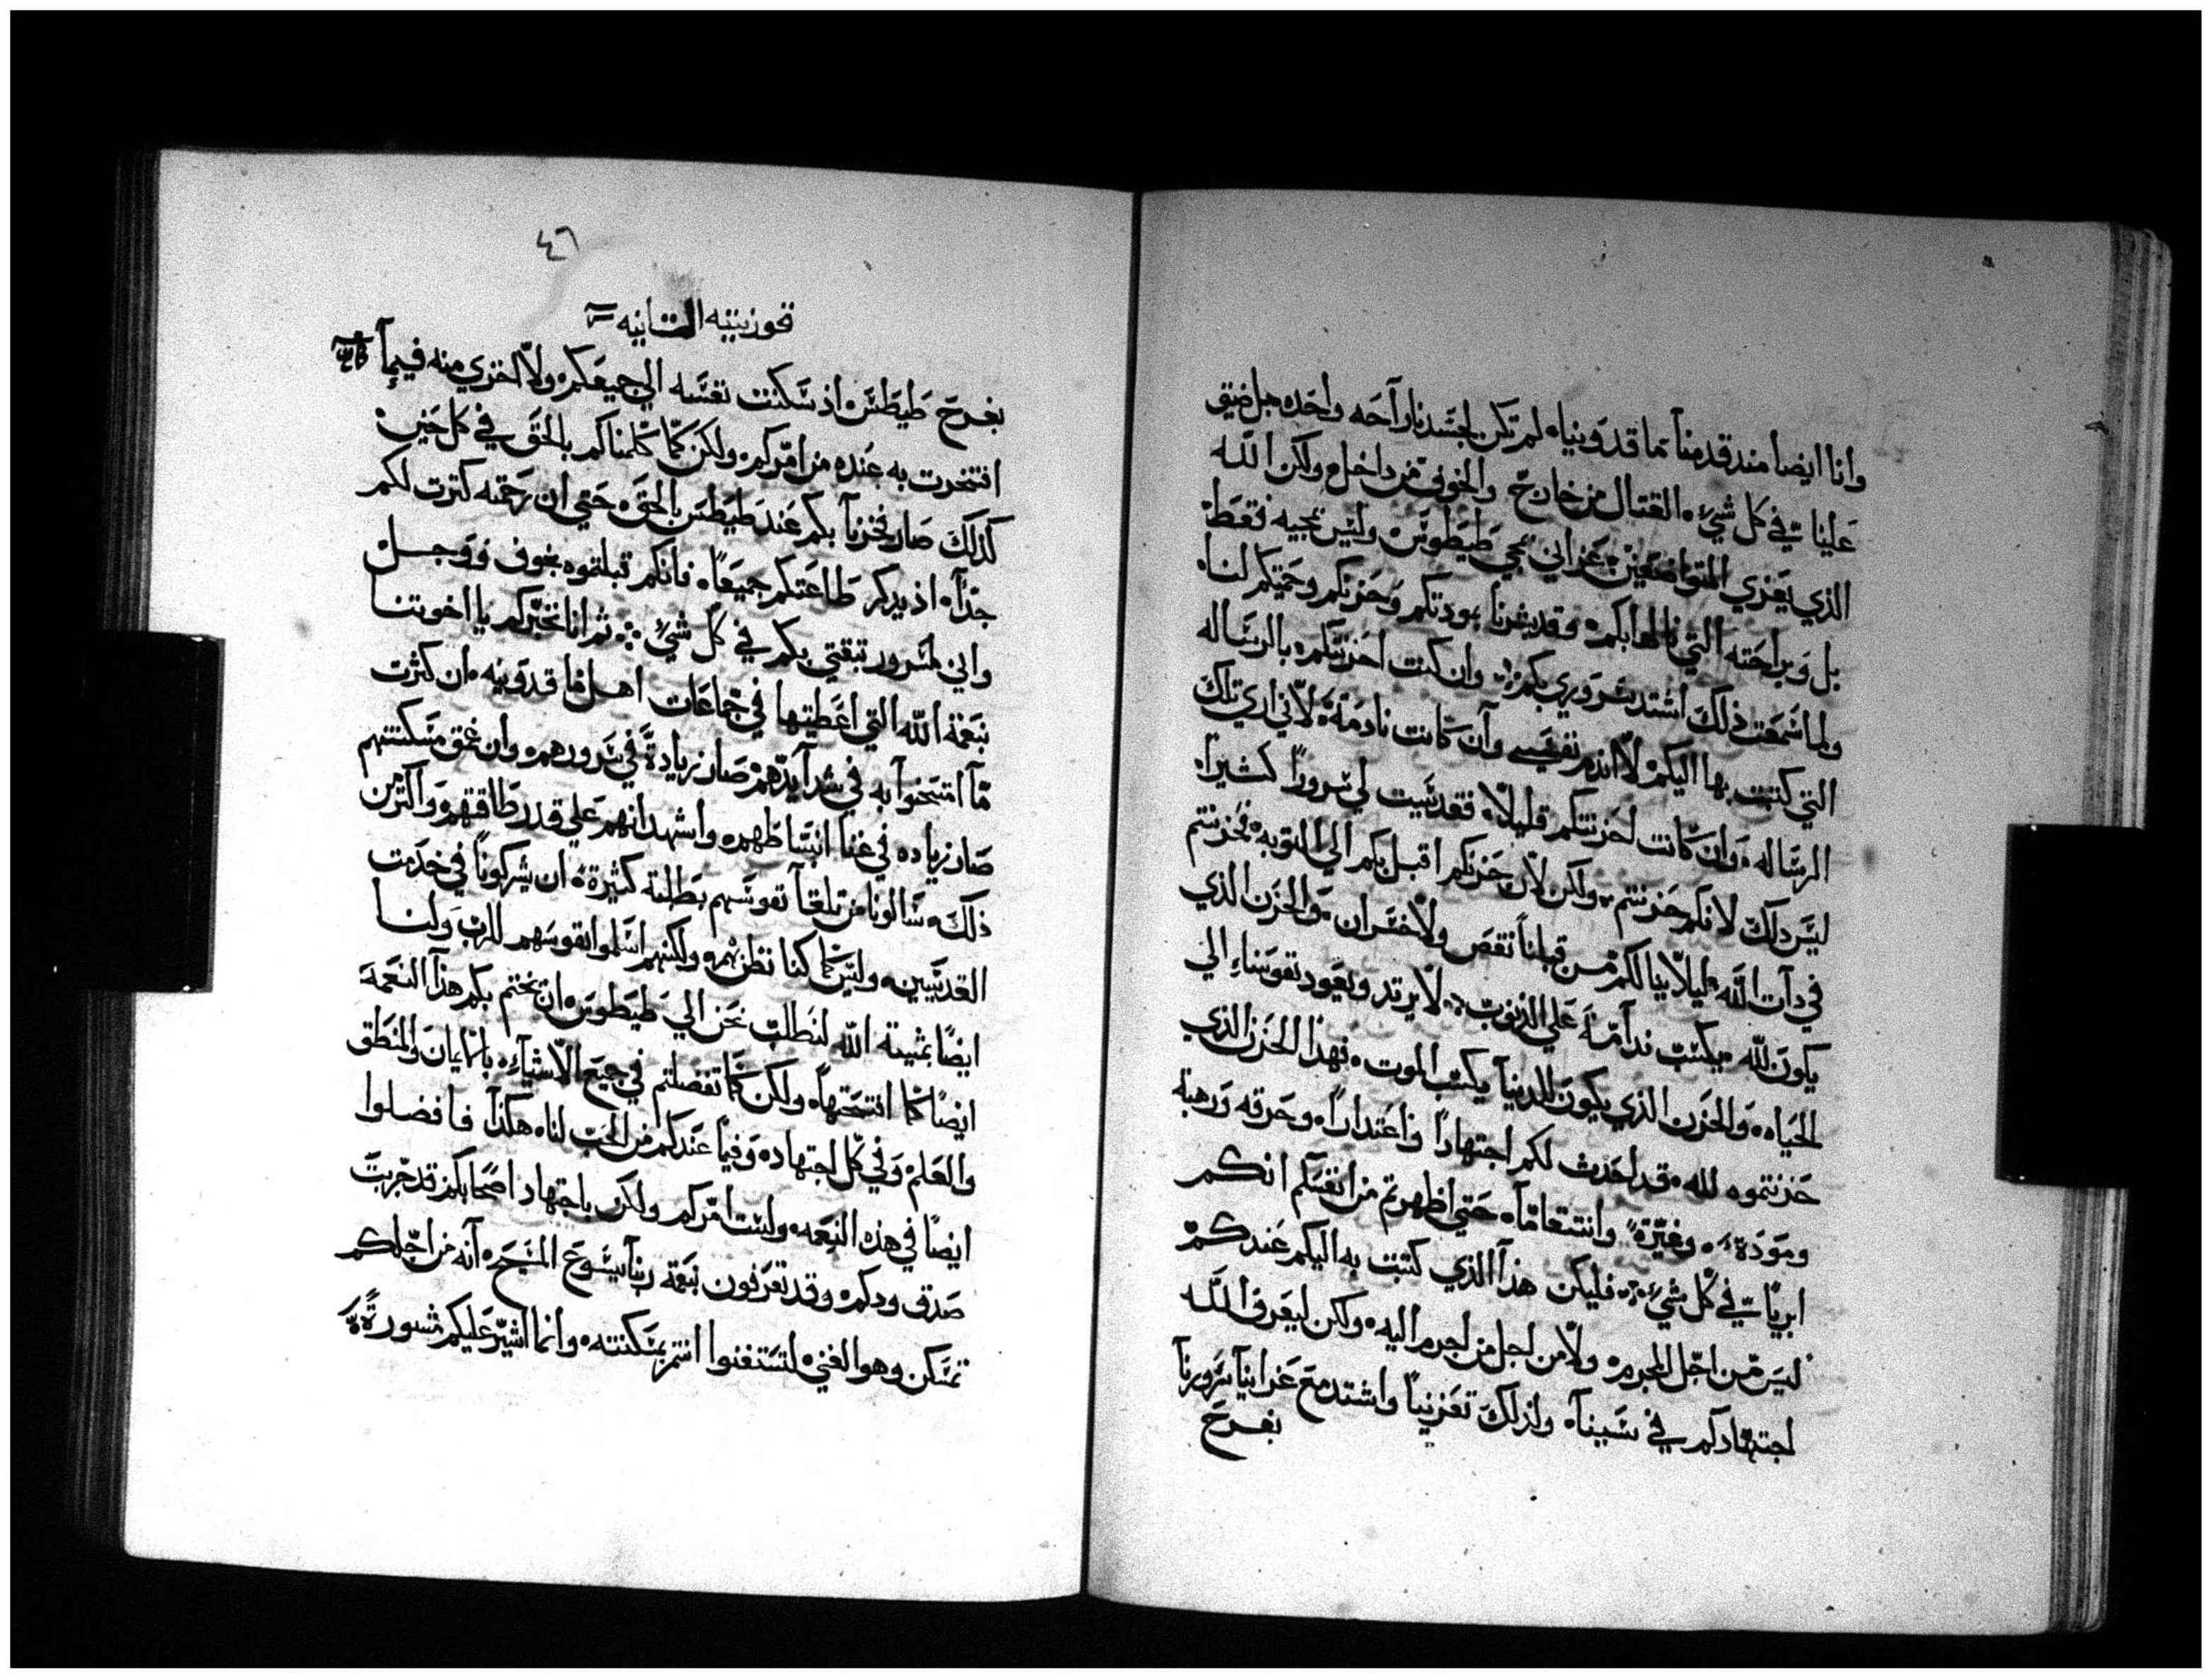 وانا ايضا منذ قدمنا ماقدونيا، لم تكن لجسدنا راحه واحده بل ضيق
علينا في كل شيء، القتال من خارج والخوف من داخل، ولكن الله
الذي يعزي المتواضعين، عزاني بمجي طيطوس، وليس بمجيه فقط
بل وبراحته التي نالها بكم، وقد بشرنا بمودتكم وحزنكم وحميتكم لنا،
ولما سمعت ذلك اشتد سروري بكم، وان كنت احزنتكم بالرساله
التي كتبت بها اليكم، لا اندم نفسي وان كانت نادمة، لاني اري تلك
الرساله، وان كانت احزنتكم قليلا، فقد سيبت لي سرورا كثيرا،
ليس ذلك لانكم حزنتم، ولكن لان حزنكم اقبل بكم الي التوبه، فحزنتم
في ذات الله، ليلا ينالكم من قبلنا نقص ولا خسران، والحزن الذي
يكون لله، يكسب ندامة علي الذنوب، لا يرتد ويعود بنفوسنا الي
الحياه، والحزن الذي يكون للدنيا يكسب الموت، فهذا الحزن الذي
حزنتموه لله، قد احدث لكم اجتهادا واعتدارا، وحرقه ورهبة
ومودة، وغيرة، وانتقاما، حتي اظهرتم من انفسكم انكم
ابريات في كل شيء، فليكن هذا الذي كتبت به اليكم عندكم
ليس من اجل المجرم، ولا من اجل من اجرم اليه، ولكن ليعرف الله
اجتهادكم في سببنا، ولذلك تعزينا واشتد مع عزاينا سرورنا
بفرح
٤٦
قورنتيه التانيه
بفرح طيطس، اذ سكنت نفسه الي جميعكم، ولا اخزي منه فيما
افتخرت به عنده من امركم، ولكن كما كلمناكم بالحق في كل حين،
كذلك صار فخرنا بكم عند طيطس بالحق، حتي ان رحمته كترت لكم
جدا، اذ يذكر طاعتكم جميعا، فانكم قبلتموه بخوف ووجل
واني لمسرور تبقتي بكم في كل شيء، ثم انا نخبركم يا اخوتنا
بنعمة الله التي اعطيتها في جماعات اهل ماقدونيه، ان كثرت
ما امتحنوا به في شدايدهم، صار زيادة في سرورهم، وان عمق مسكنتهم
صار زياده في غنا انبساطهم، واشهد انهم علي قدر طاقتهم واكتر من
ذلك، سالونا من تلقا نفوسهم بطلبة كثيرة، ان يشركونا في خدمت
القديسين، وليس كما كنا نظن بهم، ولكنهم اسلموا نفوسهم للرب ولنا
ايضا بمشية الله لنطلب نحن الي طيطوس، ان يختم بكم هذا النعمة
ايضا كما افتتحها، ولكن كما تفضلتم في جميع الاشياء، بالايمان والمنطق
والعلم، وفي كل اجتهاد، وفيما عندكم من الحب لنا، هكذا فافضلوا
ايضا في هذه النعمه، ولست امركم ولكن باجتهاد اصحابكم قد جربت
صدق ودكم، وقد تعرفون نبعمة ربنا يسوع المسيح، انه من اجلكم
تمسكن وهو الغني، لتستغنوا انتم بمسكنته، وانما اشير عليكم مشورة،